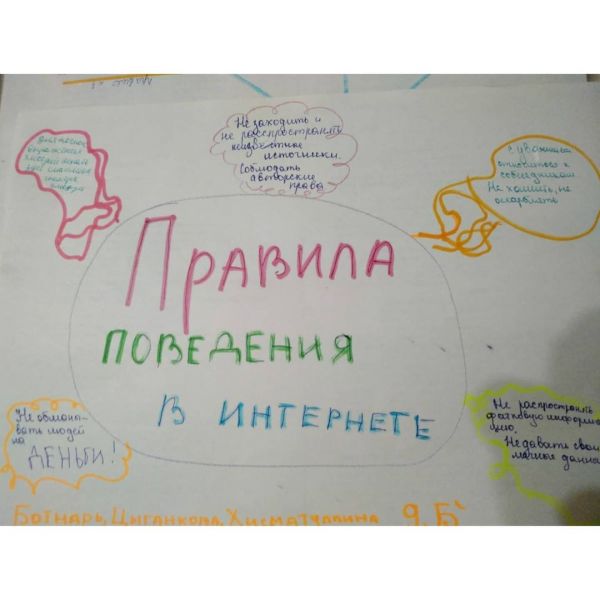 Не заходить и
не распространять
неизвестные
источники.
Соблюдать
авторские
права
с уважением
относиться к
собеседникам
Не хамить, не
оскорблять
ПРАВИЛА
ПОВЕДЕНИЯ
В ИНТЕРНЕТЕ
Не обманы-
вать людей
на
ДЕНЬГИ!
Не распространять
фейковую информа
цию.
Не давать свои
личные данны
БОТНАРЬ, ЦЫГАНКОВА, ХИСМАТУЛЛИНА 9 „Б“